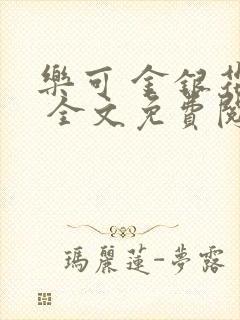 樂可 金銀花
全文免費閱
瑪麗蓮-夢露